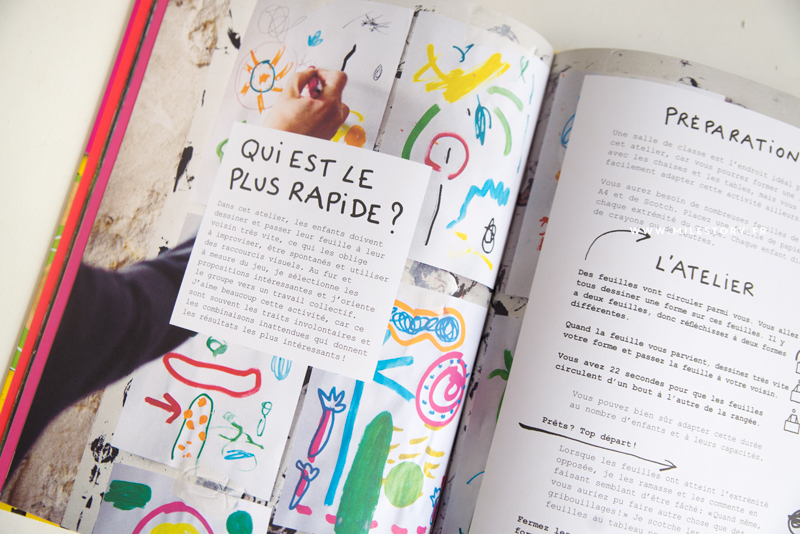 QUI EST LE
PLUS RAPIDE ?
Dans cet atelier, les enfants doivent
dessiner et passer leur feuille à leur
voisin très vite, ce qui les oblige
à improviser, être spontanés et utiliser
des raccourcis visuels. Au fur et
à mesure du jeu, je sélectionne les
propositions intéressantes et j'oriente
le groupe vers un travail collectif.
J'aime beaucoup cette activité, car ce
sont souvent les traits involontaires et
les combinaisons inattendues qui donnent
les résultats les plus intéressants !
PRÉPARATION
Une salle de classe est l'endroit idéal
cet atelier, car vous pourrez former une
avec les chaises et les tables, mais vous
facilement adapter cette activité ailleurs
Vous aurez besoin de nombreuses feuilles de
A4 et de Scotch. Placez
chaque extrémité Chaque enfant
de crayons ou feutres.
WWW.MILESTORY.FR
L'ATELIER
Des feuilles vont circuler parmi vous. Vous allez
tous dessiner une forme sur ces feuilles. Il y
a deux feuilles, donc réfléchissez à deux formes
différentes.
Quand la feuille vous parvient, dessinez très vite
votre forme et passez la feuille à votre voisin.
Vous avez 22 secondes pour que les feuilles
circulent d'un bout à l'autre de la rangée.
Vous pouvez bien sûr adapter cette durée
au nombre d'enfants et à leurs capacités.
Prêts ? Top départ !
Lorsque les feuilles ont atteint l'extrémité
opposée, je les ramasse et les commente en
faisant semblant d'être fâché : «Quand même,
vous auriez pu faire autre chose que des
gribouillages !» Je scotche les
feuilles au tableau
Fermez les